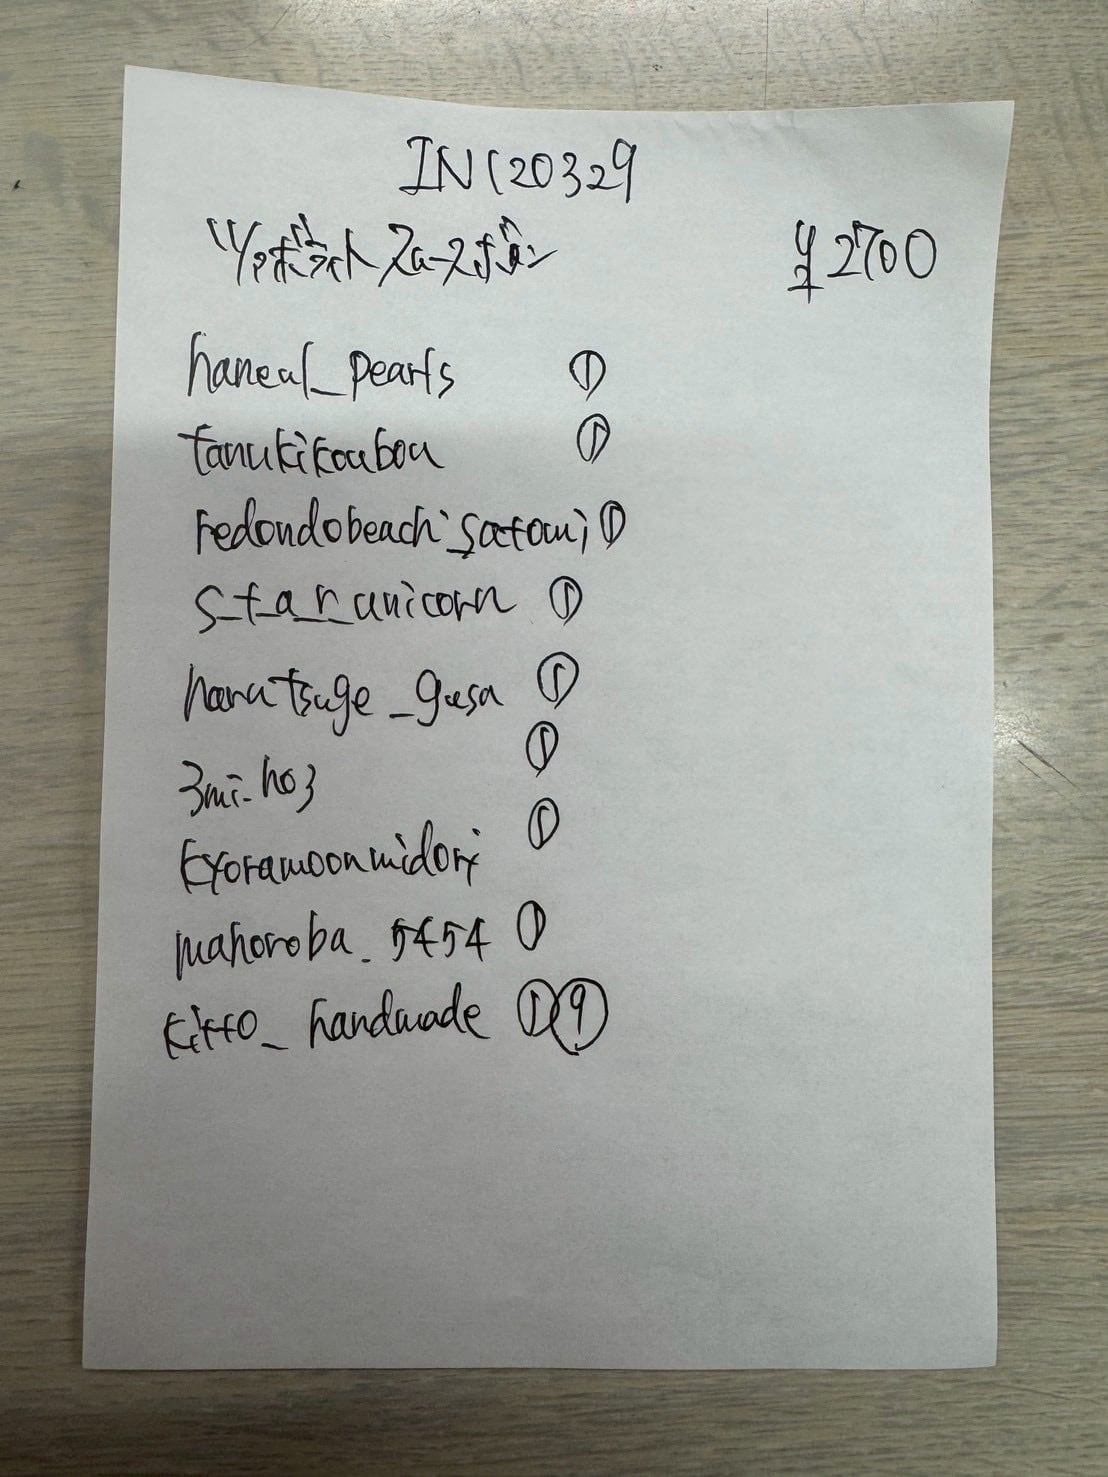 IN120329
ツァボライト スースポボン ¥2700
haneul_pearls ①
tanukikoubou ①
redondobeach_satomi ①
s_t_a_r_unicorn ①
hanatsuge_gusa ①
3mi_ho3 ①
kyoramoonmidori ①
mahoroba_5454 ①
kitto_handmade ①⑨